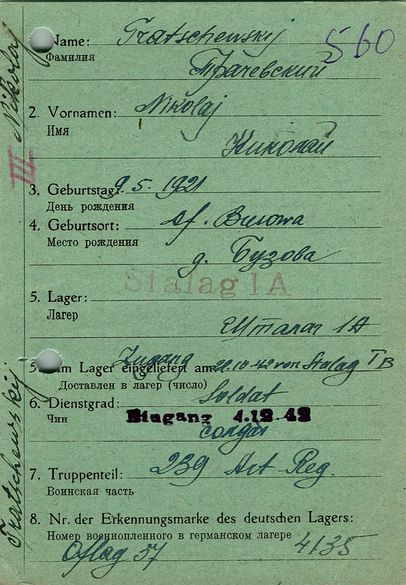 Name: Tratschewskij
560
Фамилия
Трачевский
2. Vornamen: Nikolaj
Имя
Николай
III Nikolaj
3. Geburtstag: 9.5.1921
День рождения
4. Geburtsort: Df.
Место рождения
д. Бузова
Stalag 1A
5. Lager:
Лагер
Шталаг 1А
Zugang
5. Im Lager eingeliefert am 22.10.42 von Stalag I B
Доставлен в лагер (число)
6. Dienstgrad: Soldat
Чин
Eingang 4.12.42
солдат
7. Truppenteil: 239 Art Reg.
Воинская часть
8. Nr. der Erkennungsmarke des deutschen Lagers:
Номер военнопленного в германском лагере
Oflag 57 4135
Tratschewskij